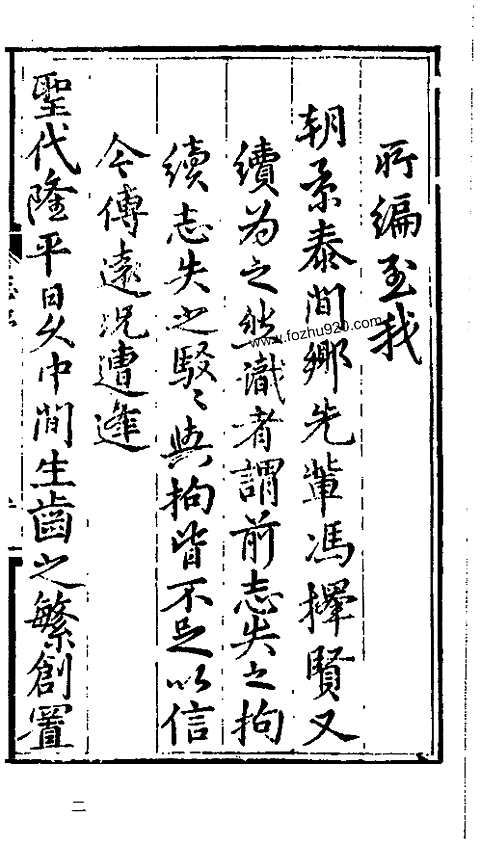 所編至我
朝景泰間鄉先輩馮擇賢又
續為之然識者謂前志失之拘
續志失之駁駁與拘皆不足以信
今傳遠況遭逢
聖代隆平日久中間生齒之繁創置
www.fozhu920.com
二